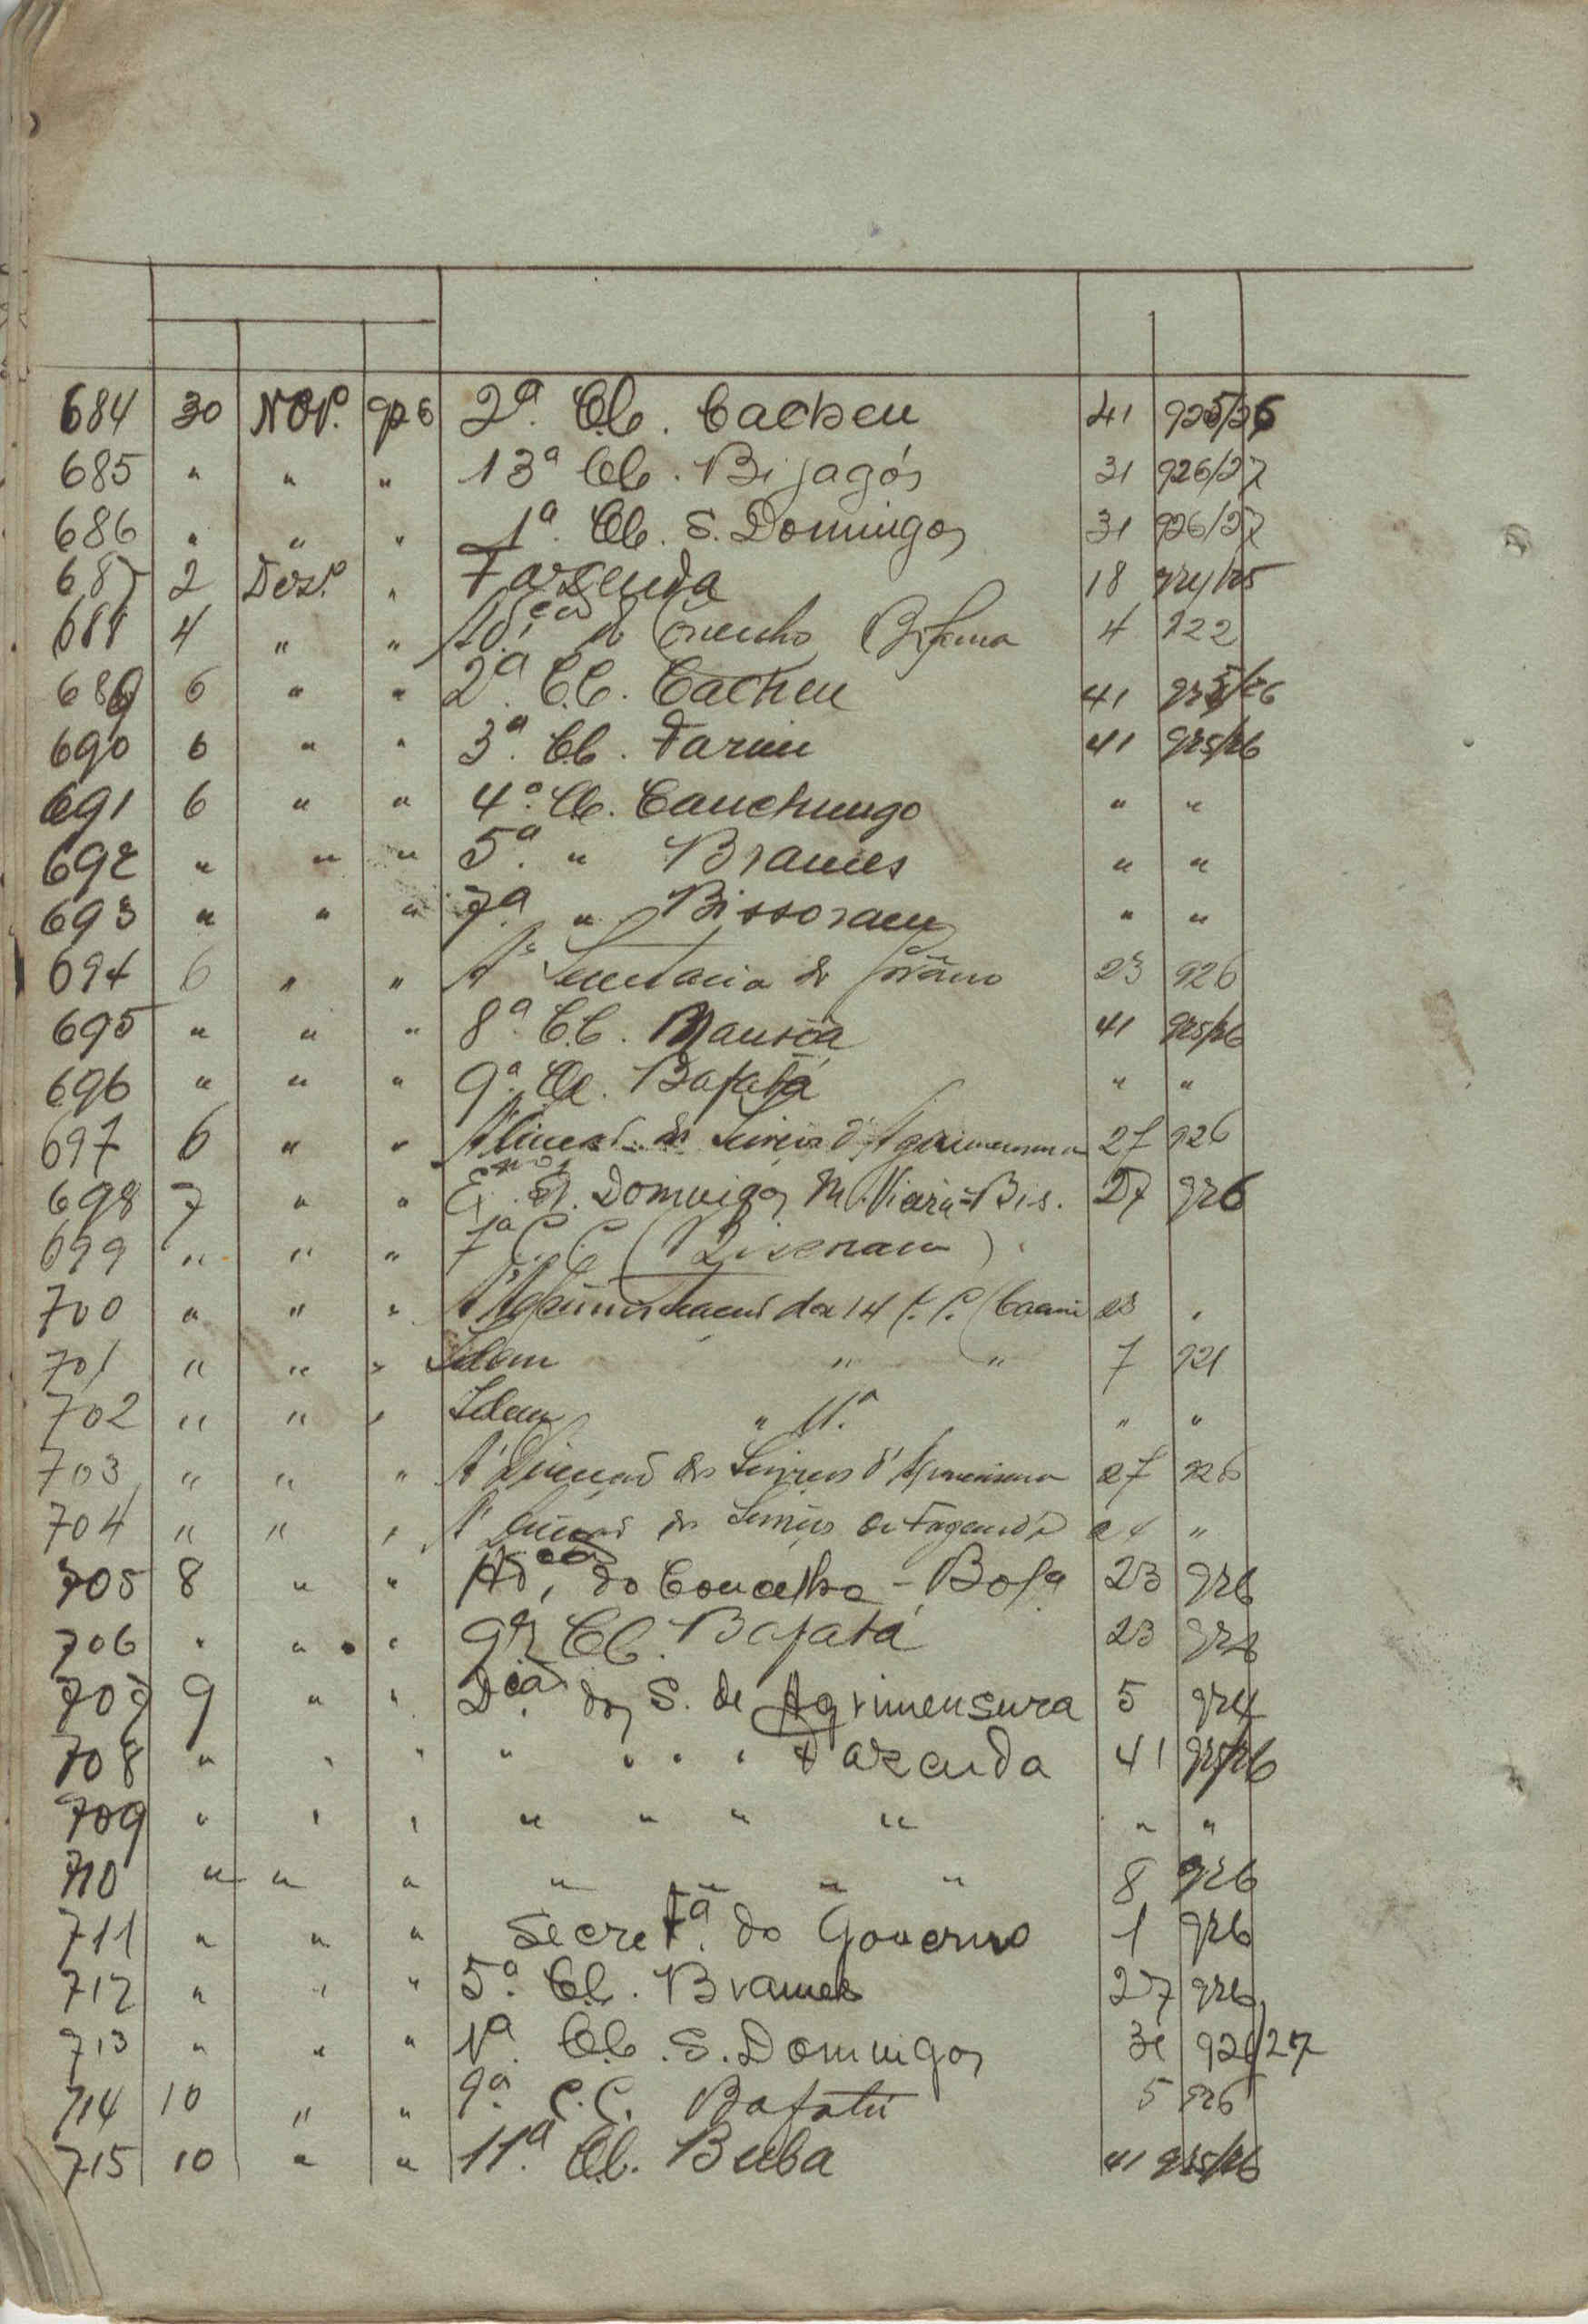 684 30 Nov.º 926 2ª. C.C. Cacheu 41 925/26
685 " " " 13ª C.C. Bijagós 31 926/27
686 " " " 1ª. C.C. S. Domingos 31 926/27
687 2 Dez.º " Fazenda 18 924/25
688 4 " " Ad.ção do Concelho Bolama 4 922
689 6 " " 2ª. C.C. Cacheu 41 925/26
690 6 " " 3ª. C.C. Farim 41 925/26
691 6 " " 4ª. C.C. Canchungo " "
692 " " " 5ª. " Brames " "
693 " " " 7ª. " Bissoram " "
694 6 " " Á Secretaria do Govêrno 23 926
695 " " " 8ª. C.C. Mansôa 41 925/26
696 " " " 9ª. C.C. Bafatá " "
697 6 " " Á Direcção dos Serviços d'Agrimensura 27 926
698 7 " " Domingos M. Vieira = Bis. 27 926
699 " " " 7ª C.C. (Bissoram)
700 " " " Á Administração da 14 C.C. 23 "
701 " " " Idem " " 7 921
702 " " " Idem " 11.ª " "
703 " " " Á Direcção dos Serviços d'Agrimensura 27 926
704 " " " Á Direcção dos Serviços de Fazenda "
705 8 " " Ad.ção do Concelho - Bol.ª 23 926
706 " " " 9ª C.C. Bafatá 23 926
707 9 " " D.ção dos S. de Agrimensura 5 924
708 " " " " " " " Fazenda 41 925/26
709 " " " " " " " " "
710 " " " " " " " 8 926
711 " " " Secret.ª do Governo 1 926
712 " " " 5ª. C.C. Brames 27 926
713 " " " 1ª. C.C. S. Domingos 31 926/27
714 10 " " 9ª. C.C. Bafatá 5 926
715 10 " " 11.ª C.C. Buba 41 925/26